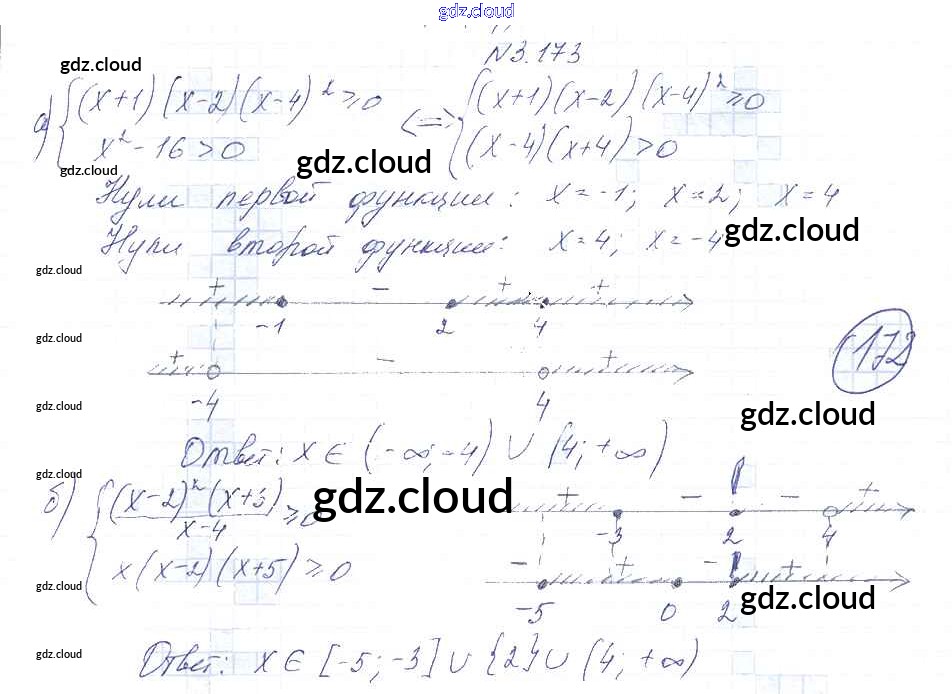 gdz.cloud
N3.173
gdz.cloud
а) { (x+1)(x-2)(x-4)² ≥ 0 <=> { (x+1)(x-2)(x-4)² ≥ 0
x² - 16 > 0 (x-4)(x+4) > 0
gdz.cloud
gdz.cloud
Нули первой функции: x = -1; x = 2; x = 4
Нули второй функции: x = 4; x = -4
gdz.cloud
gdz.cloud
+ - + +
-1 2 4
gdz.cloud
172
+ - +
-4 4
gdz.cloud
gdz.cloud
Ответ: x ∈ (-∞; -4) ∪ (4; +∞)
gdz.cloud
б) { (x-2)²(x+3) / x-4 ≥ 0
gdz.cloud
+ - - +
-3 2 4
x(x-2)(x+5) ≥ 0
- + - +
-5 0 2
gdz.cloud
gdz.cloud
Ответ: x ∈ [-5; -3] ∪ {2} ∪ (4; +∞)
gdz.cloud